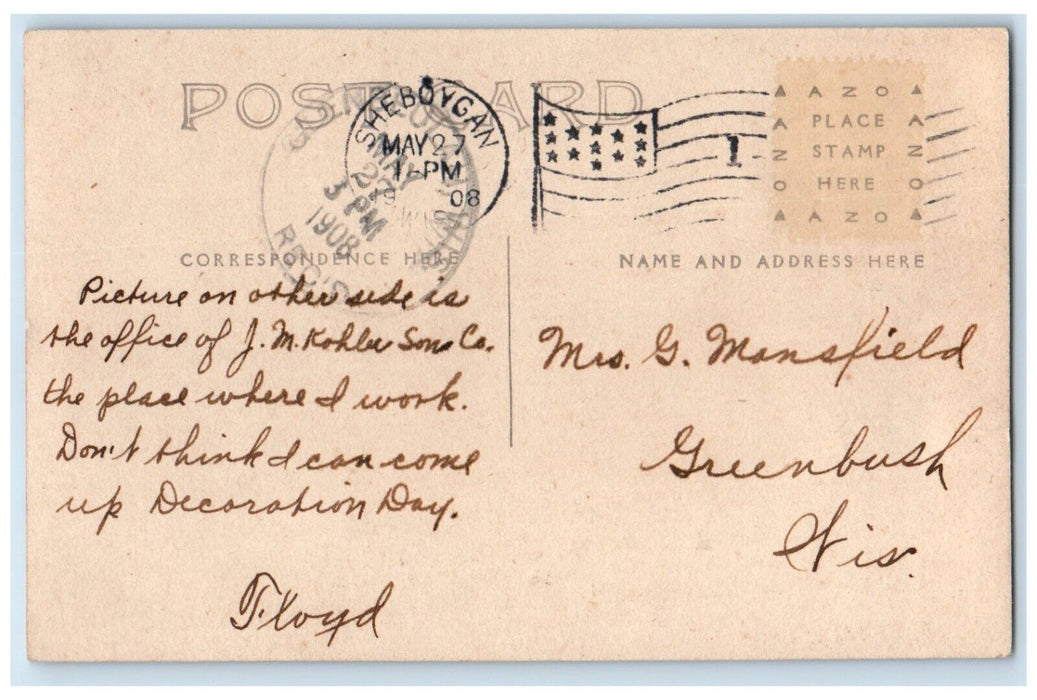 POST CARD
SHEBOYGAN
MAY 27
1-PM
08
WIS
MAY
27
3 PM
1908
REC'D
1
AZO
PLACE
STAMP
HERE
AZO
CORRESPONDENCE HERE
NAME AND ADDRESS HERE
Picture on other side is
the office of J. M. Kohler Sons Co.
the place where I work.
Don't think I can come
up Decoration Day.
Floyd
Mrs. G. Mansfield
Greenbush
Wis.